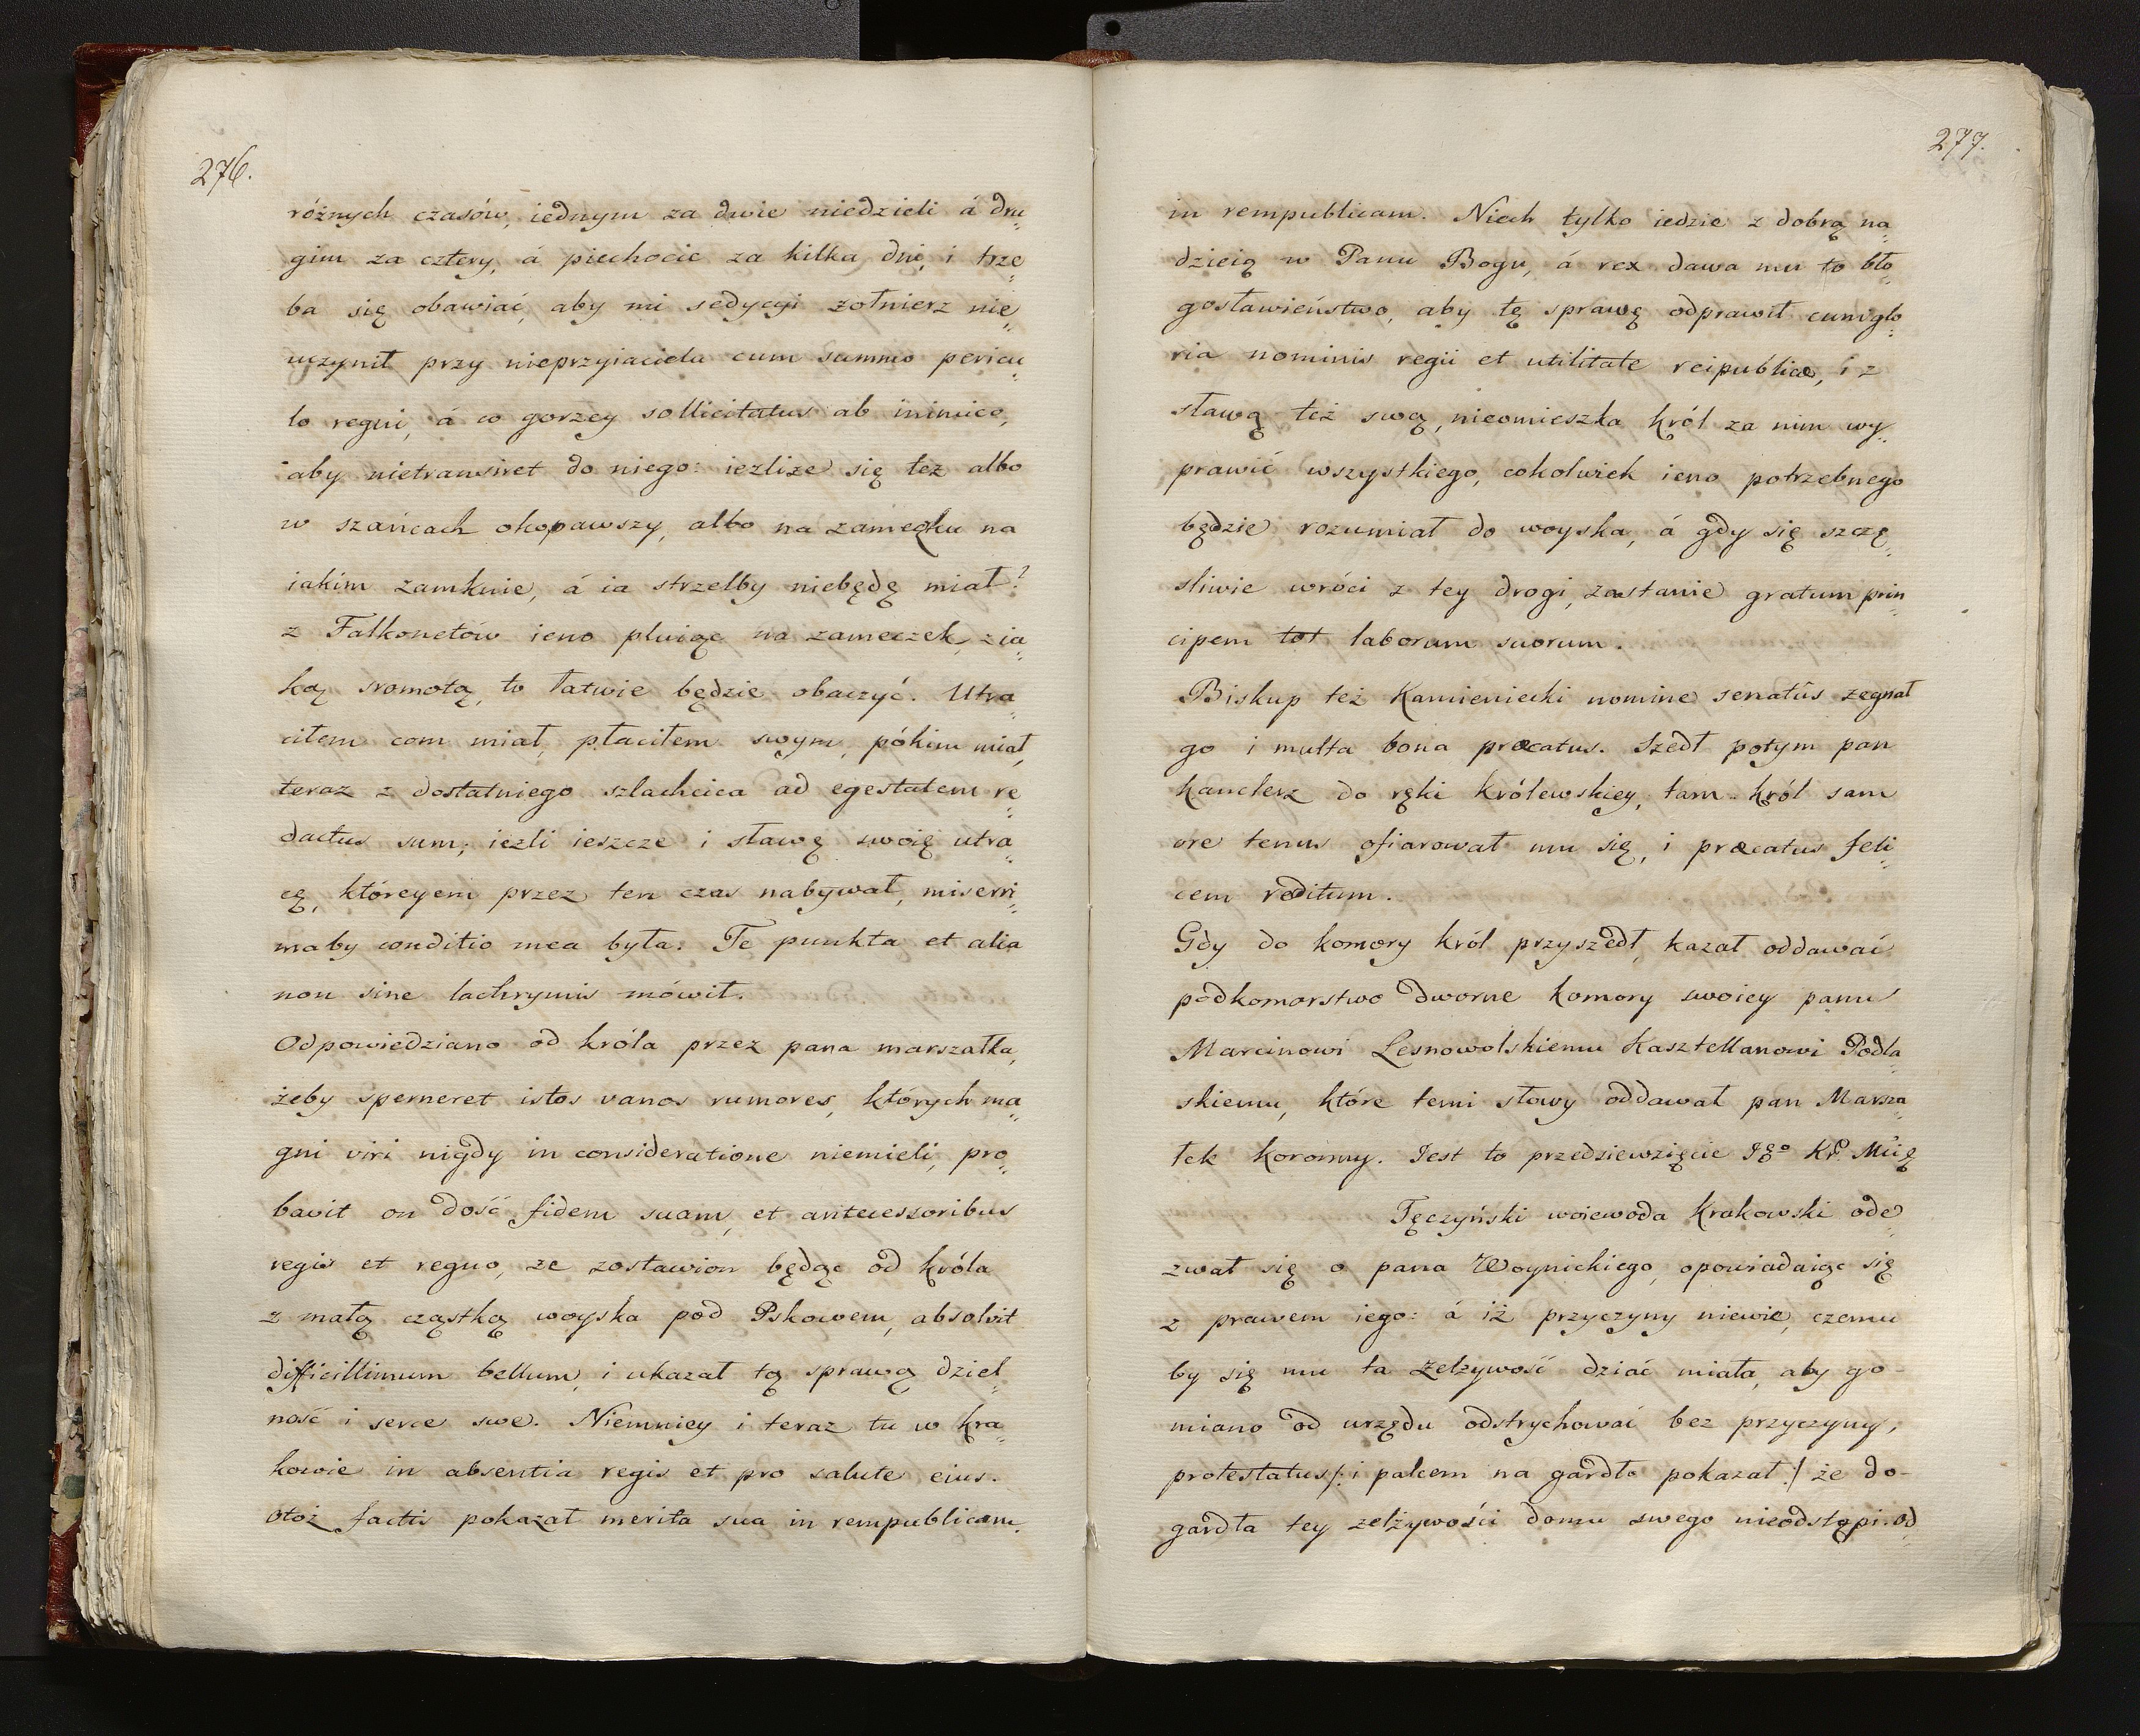 276.
różnych czasów, iednym za dwie niedzieli á dru„
gim za cztery, á piechocie za kilka dni, i trze„
ba się obawiać, aby mi sedycyi żołnierz nie„
uczynił przy nieprzyiaciela cum summo pericu„
lo regni, á co gorzey sollicitatus ab inimico,
aby nietransiret do niego: iezlize się tez albo
w szańcach okopawszy, albo na zameczku na
iakim zamknie, á ia strzelby niebędę miał?
z Falkonetów ieno pluiąc na zameczek, z ia„
ką sromotą, to łatwie będzie obaczyć. Utra„
ciłem com miał, płaciłem swym, pókim miał,
teraz z dostatniego szlachcica ad egestatem re„
dactus sum; iezli ieszcze i sławę swoię utra„
cę, któreyem przez ten czas nabywał, miserri„
maby conditio mea była. Te punkta et alia
non sine lachrymis mówił.
Odpowiedziano od króla przez pana marszałka,
żeby sperneret istos vanos rumores, których ma„
gni viri nigdy in consideratione niemieli, pro„
bavit on dość fidem suam, et antecessoribus
regis et regno, ze zostawion będąc od króla
z małą cząstką woyska pod Pskowem, absolvit
difficillimum bellum, i ukazał tą sprawą dziel„
ność i serce swe. Niemniey i teraz tu w kra„
kowie in absentia regis et pro salute eius.
otoż factis pokazał merita sua in rempublicam.
277.
in rempublicam. Niech tylko iedzie z dobrą na„
dzieią w Panu Bogu, á rex dawa mu to bło„
gosławieństwo, aby tę sprawę odprawił cum glo„
ria nominis regii et utilitate reipublicæ, i z
sławą też swą, nieomieszka król za nim wy„
prawić wszystkiego, cokolwiek ieno potrzebnego
będzie rozumiał do woyska, á gdy się szczę„
sliwie wróci z tey drogi, zastanie gratum prin„
cipem tot laborum suorum.
Biskup też Kamieniecki nomine senatûs zegnał
go i multa bona præcatus. Szedł potym pan
kanclerz do ręki królewskiey, tam król sam
ore tenus ofiarował mu się, i præcatus feli„
cem reditum.
Gdy do komory król przyszedł, kazał oddawać
podkomorstwo dworne komory swoiey panu
Marcinowi Lesnowolskiemu Kasztellanowi Podla„
skiemu, które temi słowy oddawał pan Marsza„
łek koronny. Iest to przedsiewzięcie Igo Kr. Mci
Tęczyński woiewoda Krakowski ode„
zwał się o pana Woynickiego, opowiadaiąc się
z prawem iego: á iż przyczyny niewie, czemu
by się mu ta zelzywość dziać miała, aby go
miano od urzędu odstrychować bez przyczyny,
protestatus /: i palcem na gardło pokazał :/ że do-
gardła tey zelżywości domu swego nieodstąpi. Od„